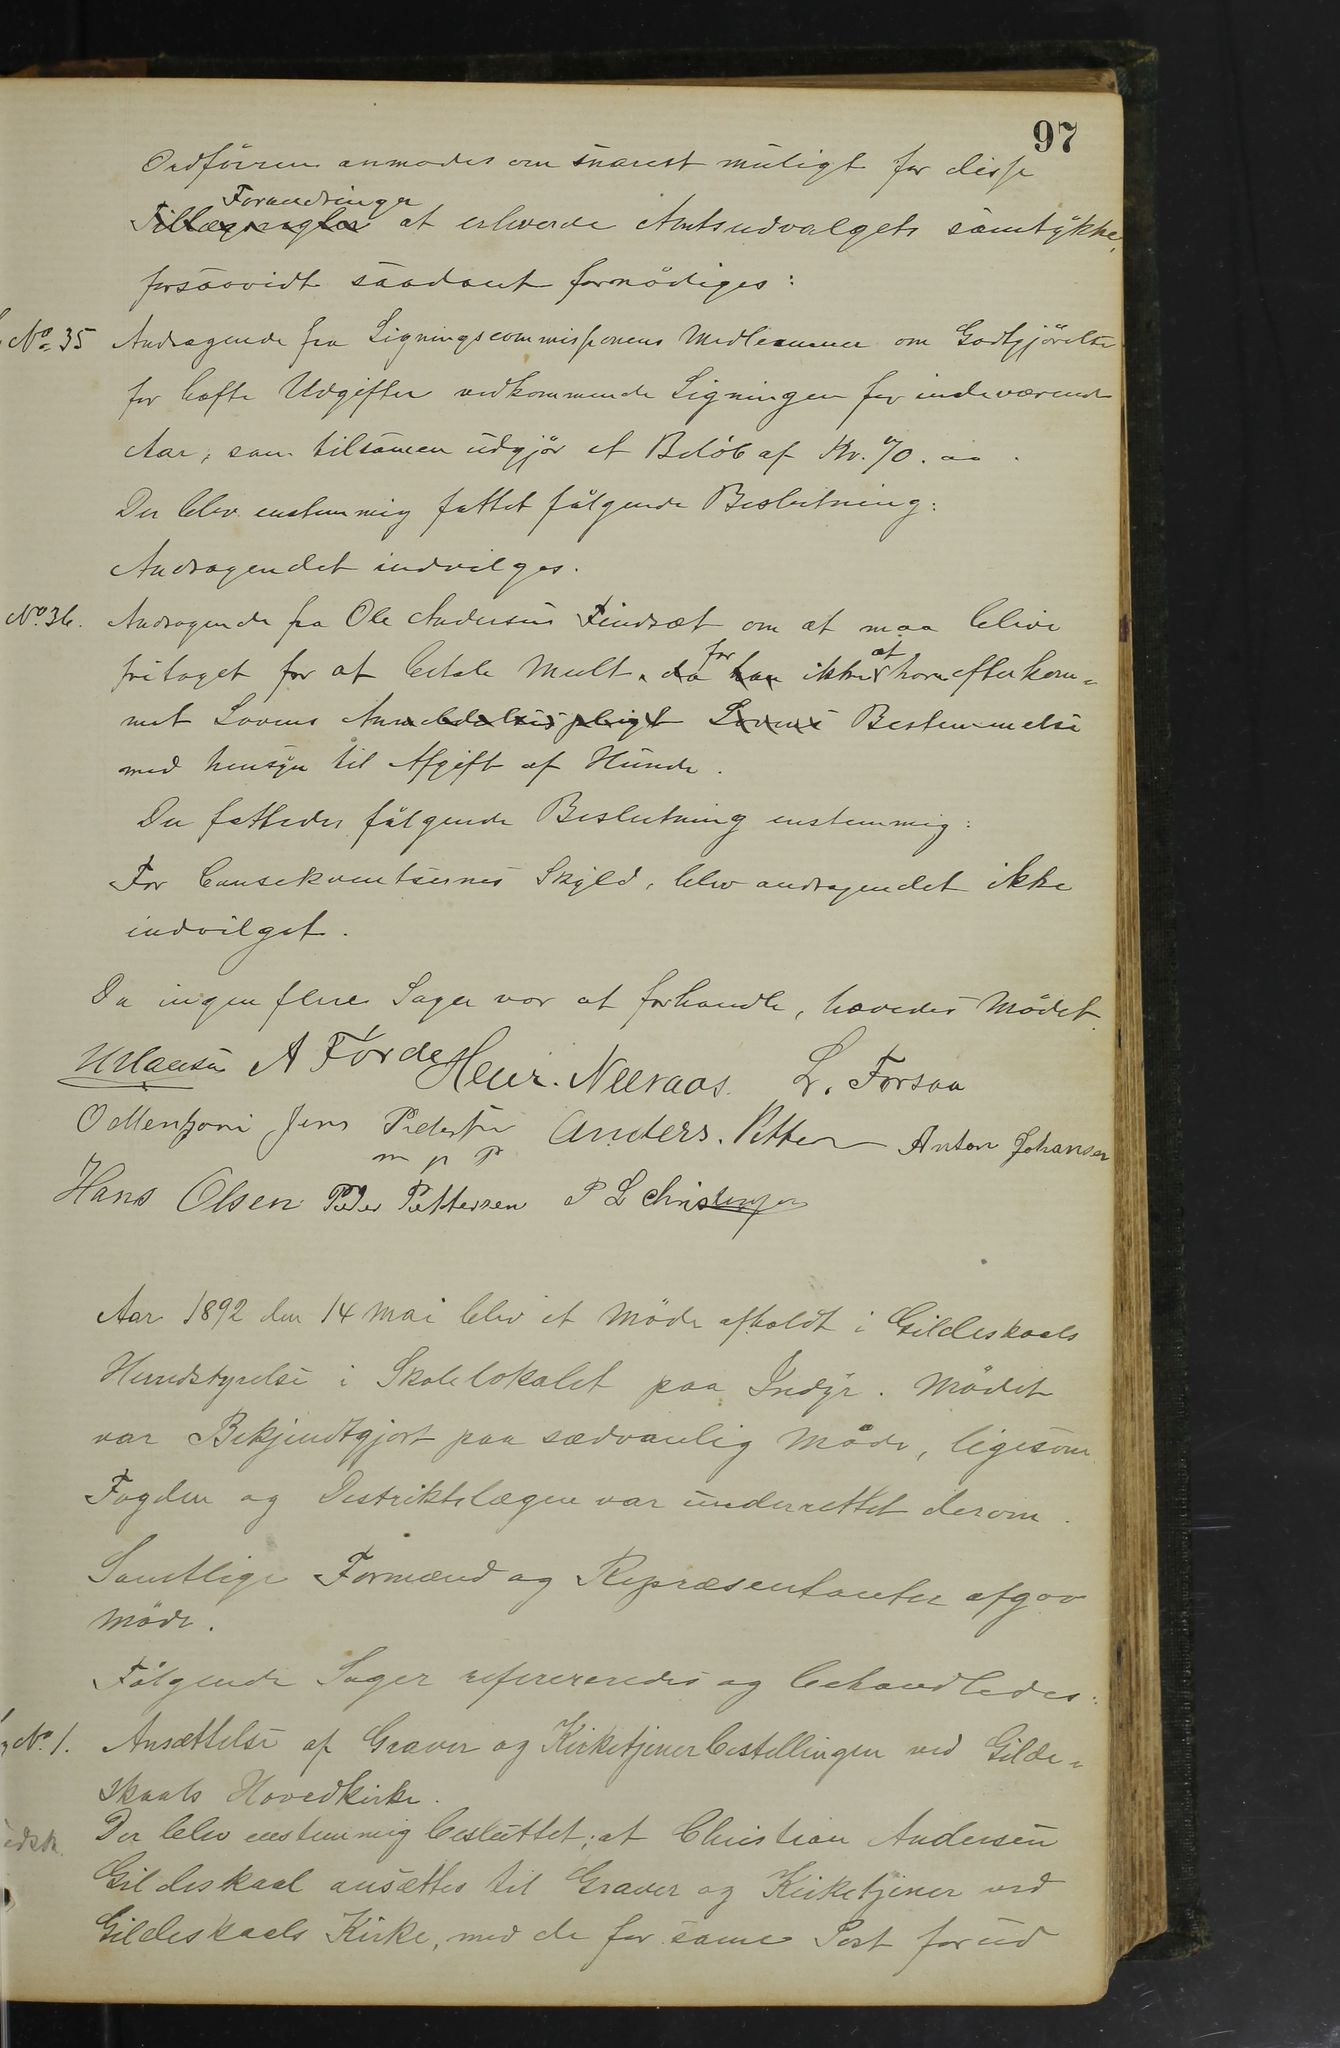 97
Ordförren anmodes om snarest muligt for disse
Forandringer
Tillægsregler at erhverde Amtsudvalgets samtykke,
forsaavidt saadant formödiges:
No. 35 Andragende fra Ligningscommissionens Medlemmer om Godtgjörelse
for hafte Udgifter vedkommende Ligningen for indeværende
Aar, som tilsamen udgjör et Belöb af Kr. 70.00.
Der blev enstemmig fattet fölgende Beslutning:
Andragendet indvilges.
No. 36. Andragende fra Ole Andersen Findsæt om at maa blive
for at
fritaget for at betale Mult. da han ikke have efterkom-
met Lovens Anmeldelsespligt Lovens Bestemmelse
med hensyn til Afgift af Hunde.
Der fattedes fölgende Beslutning enstemmig:
For Consekventsernes Skyld, blev andragendet ikke
indvilget.
Da ingen flere Sager var at forhandle, hævedes Mödet.
A Förde Heur. Neeraas. L. Forsaa
Jens Pedersen Anders. Petter Anton Johansen
m p P
Hans Olsen Peder Pettersen P L Christensen
Aar 1892 den 14 Mai blev et Möde afholdt i Gildeskaals
Herredstyrelse i Skolelokalet paa Indyr. Mödet
var Bekjendtgjort paa sædvanlig Måde, ligesom
Fogden og Destriktslægen var underrettet derom.
Samtlige Formænd og Repræsentanter afgav
Möde.
Fölgende Sager refereredes og behandledes:
No. 1. Ansættelse af Graver og Kirketjenerbestillingen ved Gilde-
skaals Hovedkirke.
Der blev enstemmig besluttet; at Christian Andersen
Gildeskaal ansættes til Graver og Kirketjener ved
Gildeskaals Kirke, med de for same Post forud